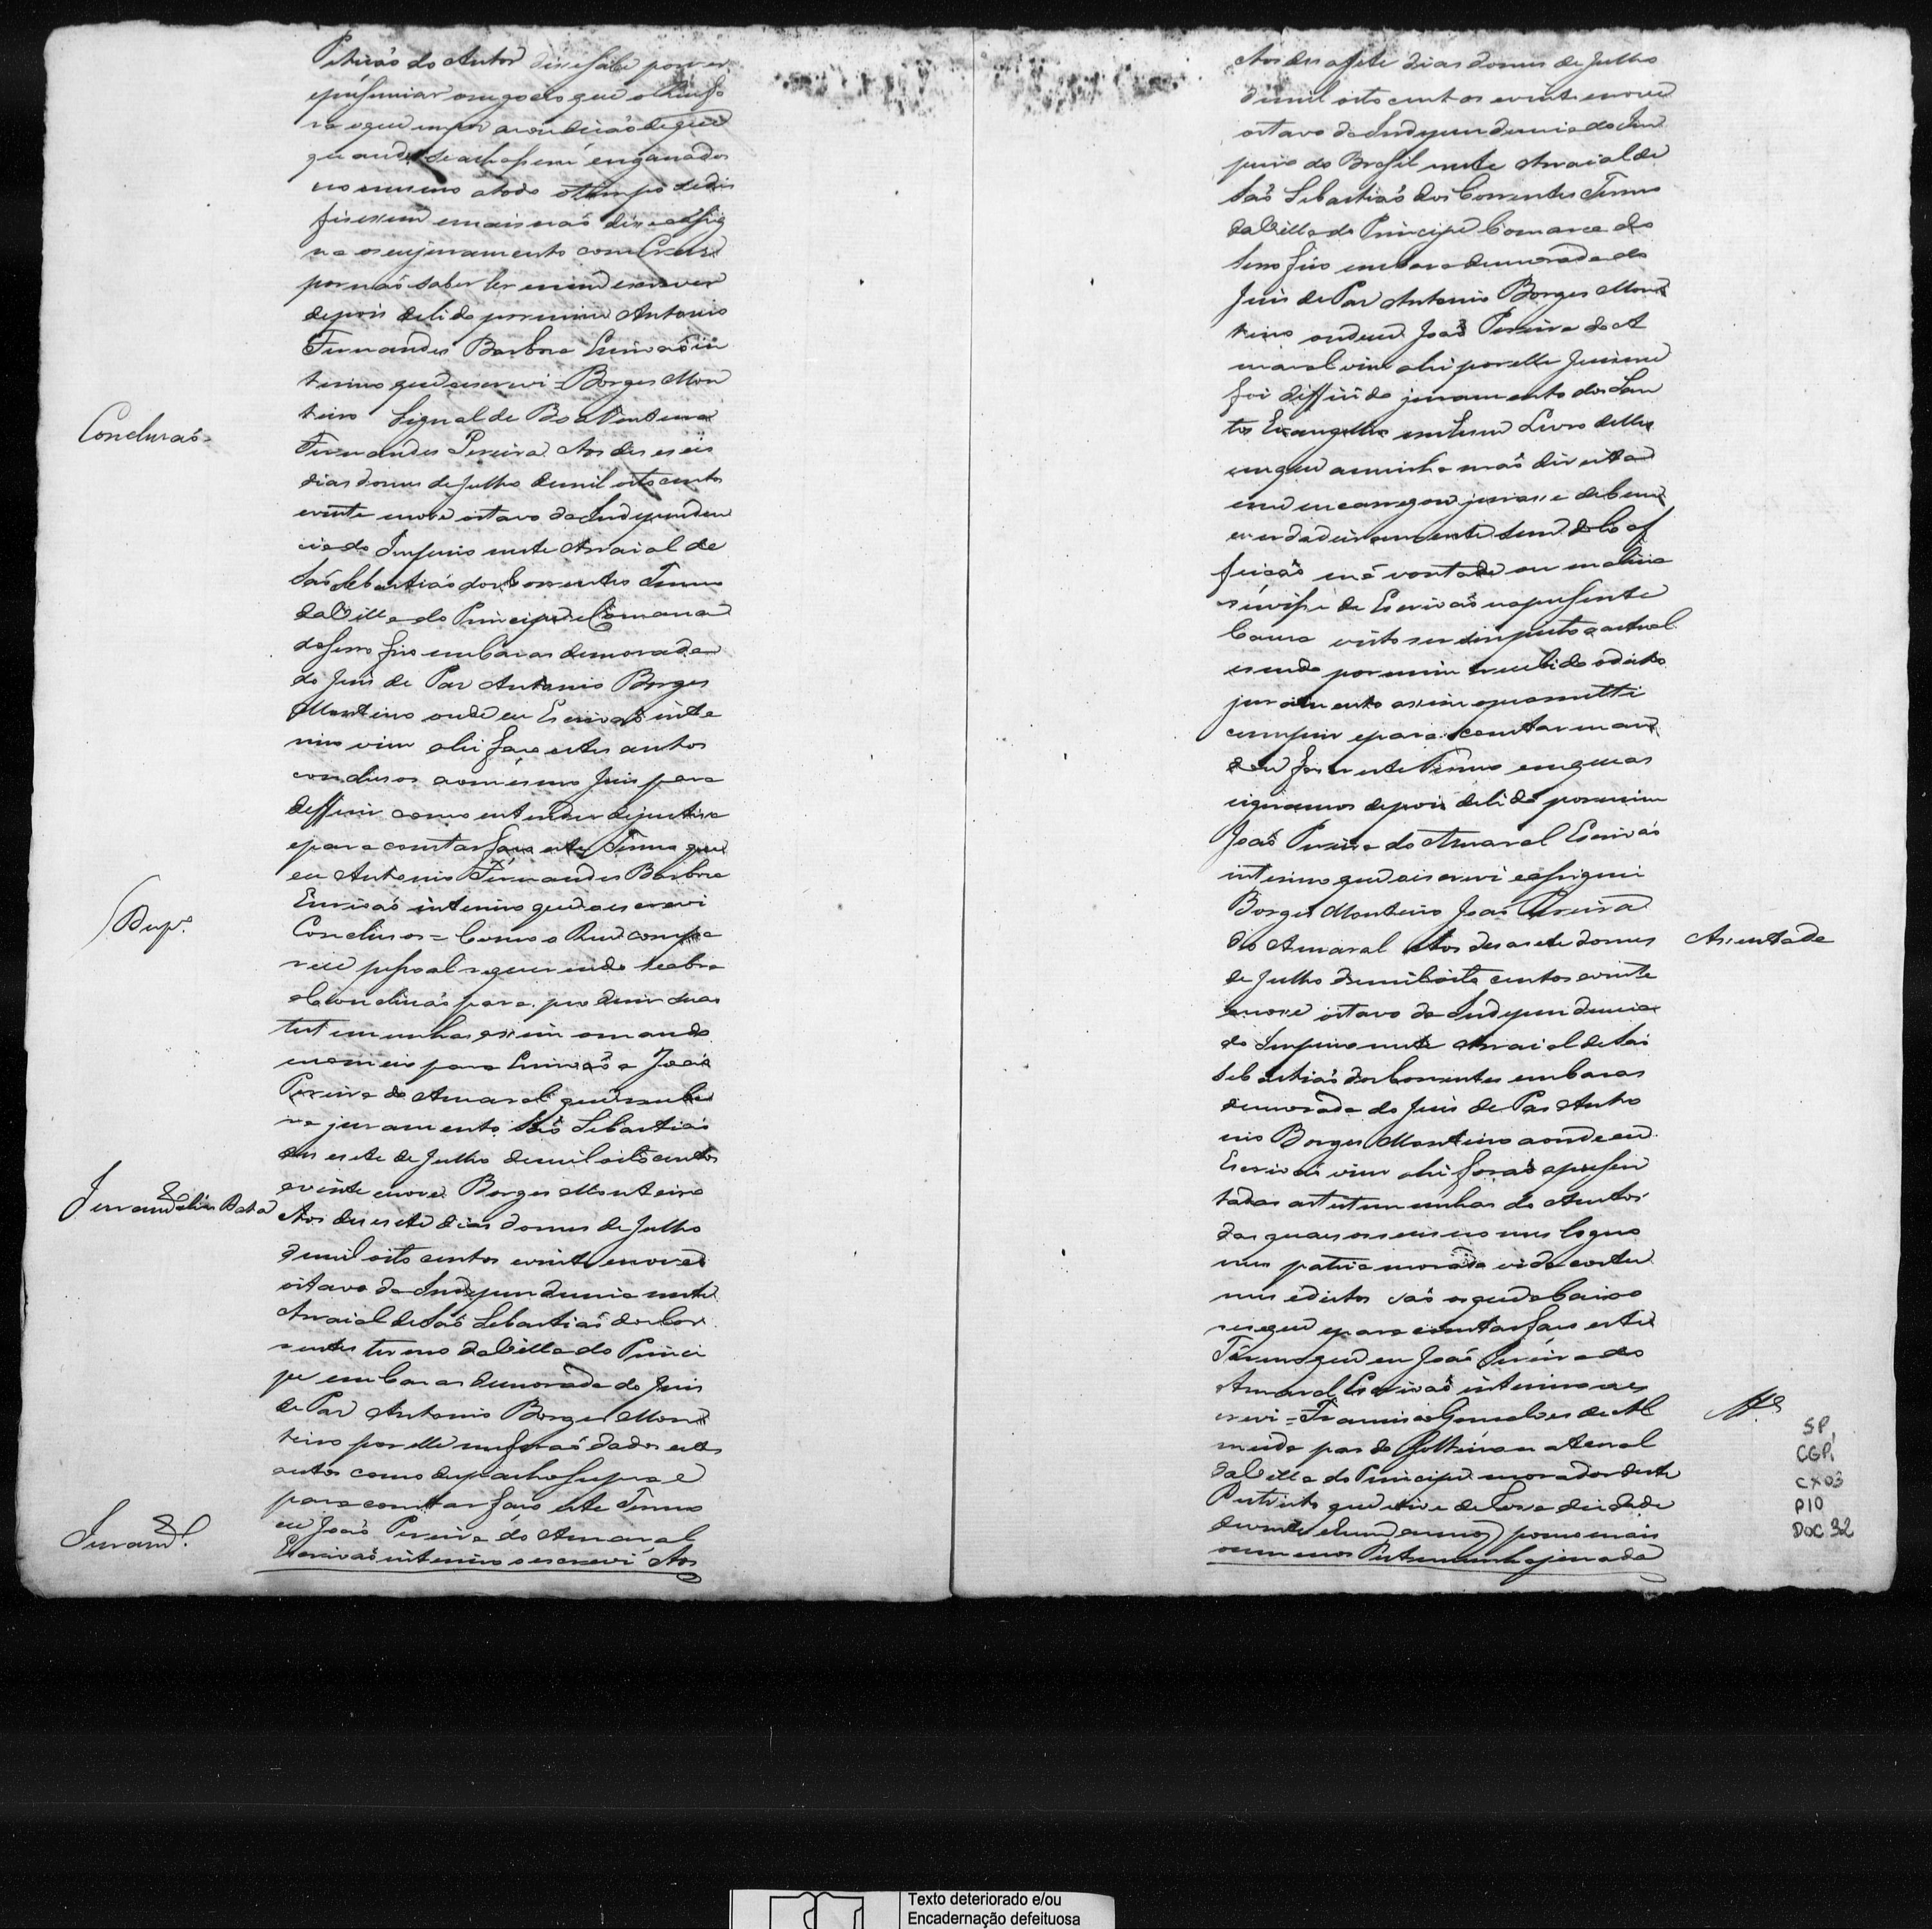 Petiçaõ do Autor disse sabe por ver
e presenciar o negocio que
que
quando se achassem enganados
no mesmo a todo o tempo se dis
fisessem e mais naõ disse e assig
na o seu juramento com Crus
por naõ saber ler e nem escrever
depois de lido por mim Antonio
Fernandes Barbosa Escrivaõ in
terino que o escrevi = Borges Mon
teiro Signal de Boa Ventura
Concluzaõ =
Fernandes Pereira Aos deseseis
dias do mes de Julho de mil oito centos
e vinte e nove oitavo da Independen
cia do Imperio neste Arraial de
Saõ Sebastiaõ dos Correntes Termo
da Villa do Principe Comarca
do Serro frio em Casas de morada
do Juis de Pas Antonio Borges
Monteiro onde eu Escrivaõ inte
rino vim ahi faso estes autos
conclusos ao mesmo Juis para
defferir como entender de justiça
e para constar faso este Termo que
eu Antonio Fernandes Barbosa
Escrivaõ interino que o escrevi
Desp.º
Conclusos = Como o Reo compa
rece pessoal requerendo se abra
a Concluzaõ para produzir suas
testemunhas assim o mando
nomeio para Escrivaõ a Joaõ
Pereira do Amaral que recebe
ra juramento Saõ Sebastiaõ
des e sete de Julho de mil oito centos
e vinte e nove Borges Monteiro
Data
Aos des e sete dias do mes de Julho
de mil oito centos e vinte e nove
oitavo da Independencia neste
Arraial de Saõ Sebastiaõ dos Cor
rentes termo da Villa do Princi
pe em Casas de morada do Juis
de Pas Antonio Borges Mon
teiro por elle me foraõ dados estes
autos com o despacho supra e
para constar faso este Termo
eu Joaõ Pereira do Amaral
Juram.to
Escrivaõ interino o escrevi Aos
Aos des a sete dias do mes de Julho
de mil oito centos e vinte e nove
oitavo da Independencia do Im
perio do Brasil neste Arraial de
Saõ Sebastiaõ dos Correntes Termo
da Villa do Principe Comarca do
Serro frio em Casas de morada do
Juis de Pas Antonio Borges Mon
teiro onde eu Joaõ Pereira do A
maral vim ahi por elle Juis me
foi defferido juramento dos San
tos Evangelhos em hum Livro delles
em que a minha maõ direita
e me encarregou jurasse de bem
e verdadeiramente sem dolo af
feiçaõ má vontade ou malicia
servisse de Escrivaõ na presente
Causa visto ser suspeito o actual
e sendo por mim recebido o dito
juramento assim o prometti
cumprir e para constar man
dou faser este Termo em que as
signamos depois de lido por mim
Joaõ Pereira do Amaral Escrivaõ
interino que o escrevi e assignei
Borges Monteiro Joaõ Pereira
do Amaral Aos des a sete do mes Asentada
de Julho de mil oito centos e vinte
e nove oitavo da Independencia
do Imperio neste Arraial de Saõ
Sebastiaõ dos Correntes em Casas
de morada do Juis de Pas Anto
nio Borges Monteiro aonde eu
Escrivaõ vim ahi foraõ apresen
tadas as testemunhas do Autor
das quaes os seus nomes Cogno
mes patria morada vida costu
mes e ditos saõ os que abaixo
se segue e para constar faso este
Termo que eu Joaõ Pereira do
Amaral Escrivaõ interino o es
crevi = Francisco Gonsalves de Al
meida pardo Solteiro natural
da Villa do Principe morador deste
Destricto que vive de Lavoura de idade
de vinte e hum annos pouco mais
ou menos Testemunha jurada
SP,
CGP,
CX03
P10
DOC 32
Texto deteriorado e/ou
Encadernação defeituosa